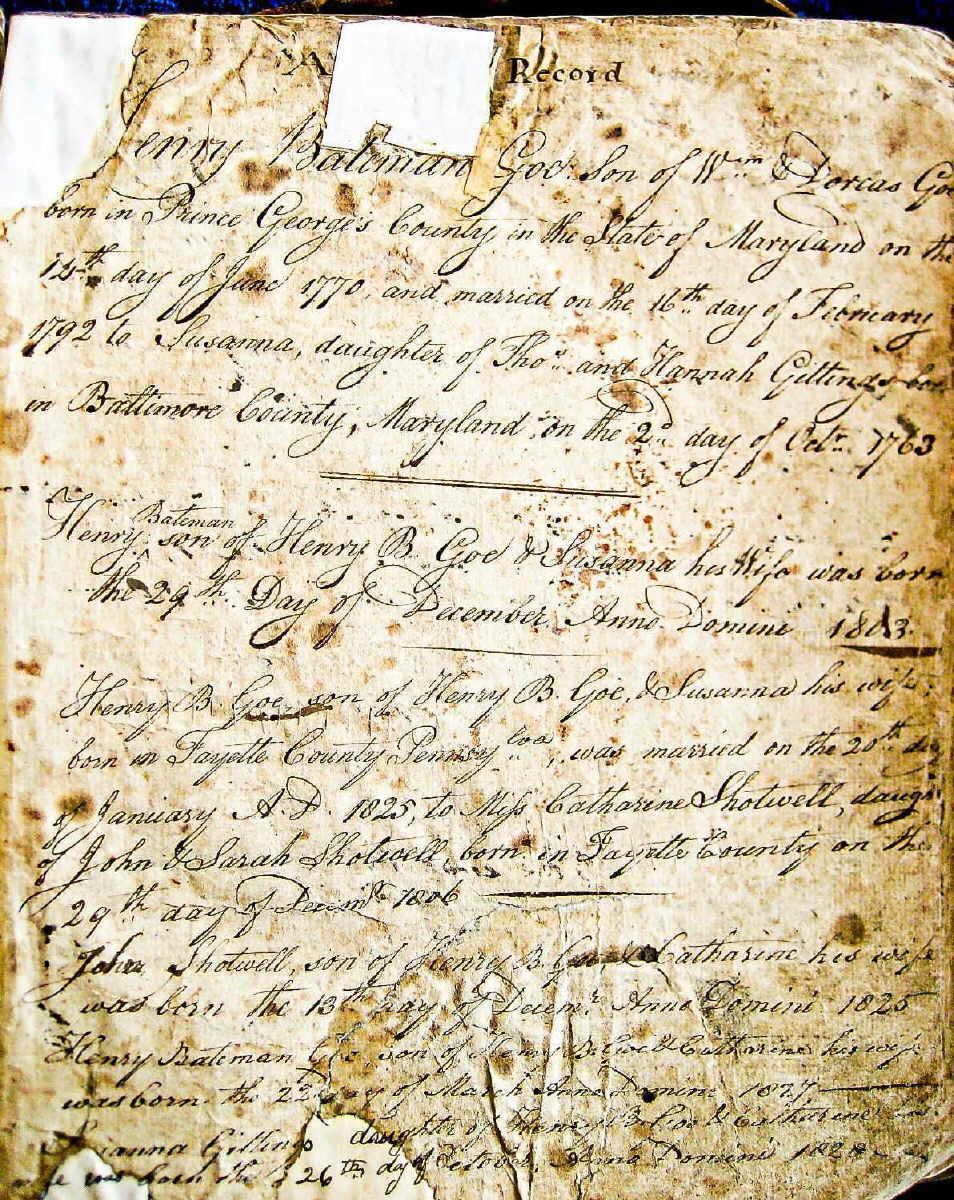 A Record
Henry Bateman Goe son of Wm & Dorcas Goe
born in Prince George's County in the State of Maryland on the
day of June 1770, and married on the 16th day of February
1792 to Susanna, daughter of Thos and Hannah Gittings born
in Baltimore County, Maryland, on the 2d day of Octr 1763
Henry Bateman son of Henry B. Goe & Susanna his Wife was born
the 29th Day of December Anno Domini
Henry B. Goe, son of Henry B. Goe, & Susanna his wife,
born in Fayette County Pennsylva, was married on the 20th day
of January A.D. 1825, to Miss Catharine Shotwell, daugr
of John & Sarah Shotwell, born in Fayette County on the
29th day of Decemr 1806
John Shotwell, son of Henry B. Goe, & Catharine his wife
was born the 13th day of Decemr Anno Domini 1825
Henry Bateman Goe, son of Henry B. Goe & Catharine his wife
was born the 22 Day of March Anno Domini 1827
Gittings daughter of Henry B Goe & Catharine his
was born the 26th day of October, Anno Domini